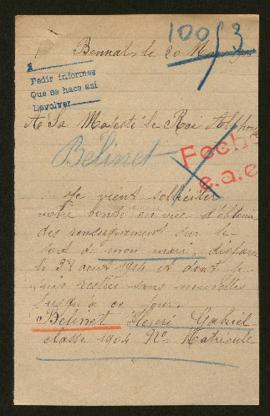 100/3
Bennat, le 20 M
Pedir informes
Que se hace así
Devolver
A Sa Majesté le Roi Alphon
Belinet
Fecha
e.a.e
Je vient solliciter
votre bonté en vue d'obtenir
des renseignements sur le
sort de mon mari, disparu
le 27 août 1914 et dont je
suis restée sans nouvelles
jusqu'à ce jour.
Belinet Henri Gabriel
classe 1904 No Matricule